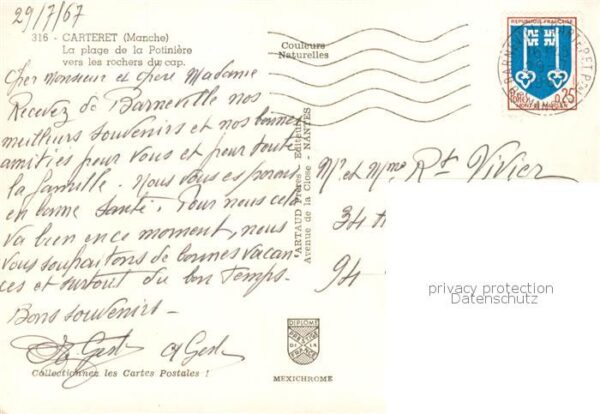 29/7/67
316 - CARTERET (Manche)
La plage de la Potinière
vers les rochers du cap.
Couleurs
Naturelles
REPUBLIQUE FRANÇAISE
0,25
MONT-DE-MARSAN
BARNEVILLE CARTERET
Cher Monsieur et chère Madame
Recevez de Barneville nos
meilleurs souvenirs et nos bonnes
amitiés pour vous et pour toute
la famille. Nous vous espérons
en bonne santé. Pour nous cela
va bien en ce moment, nous
vous souhaitons de bonnes vacan-
ces et surtout du bon temps.
Bons souvenirs -
ARTAUD Frères, Editeurs
Avenue de la Close - NANTES
Mr et Mme Rt Vivier
34
94
privacy protection
Datenschutz
DIPLOME
PRESTIGE
DE LA
FRANCE
Collectionnez les Cartes Postales !
MEXICHROME